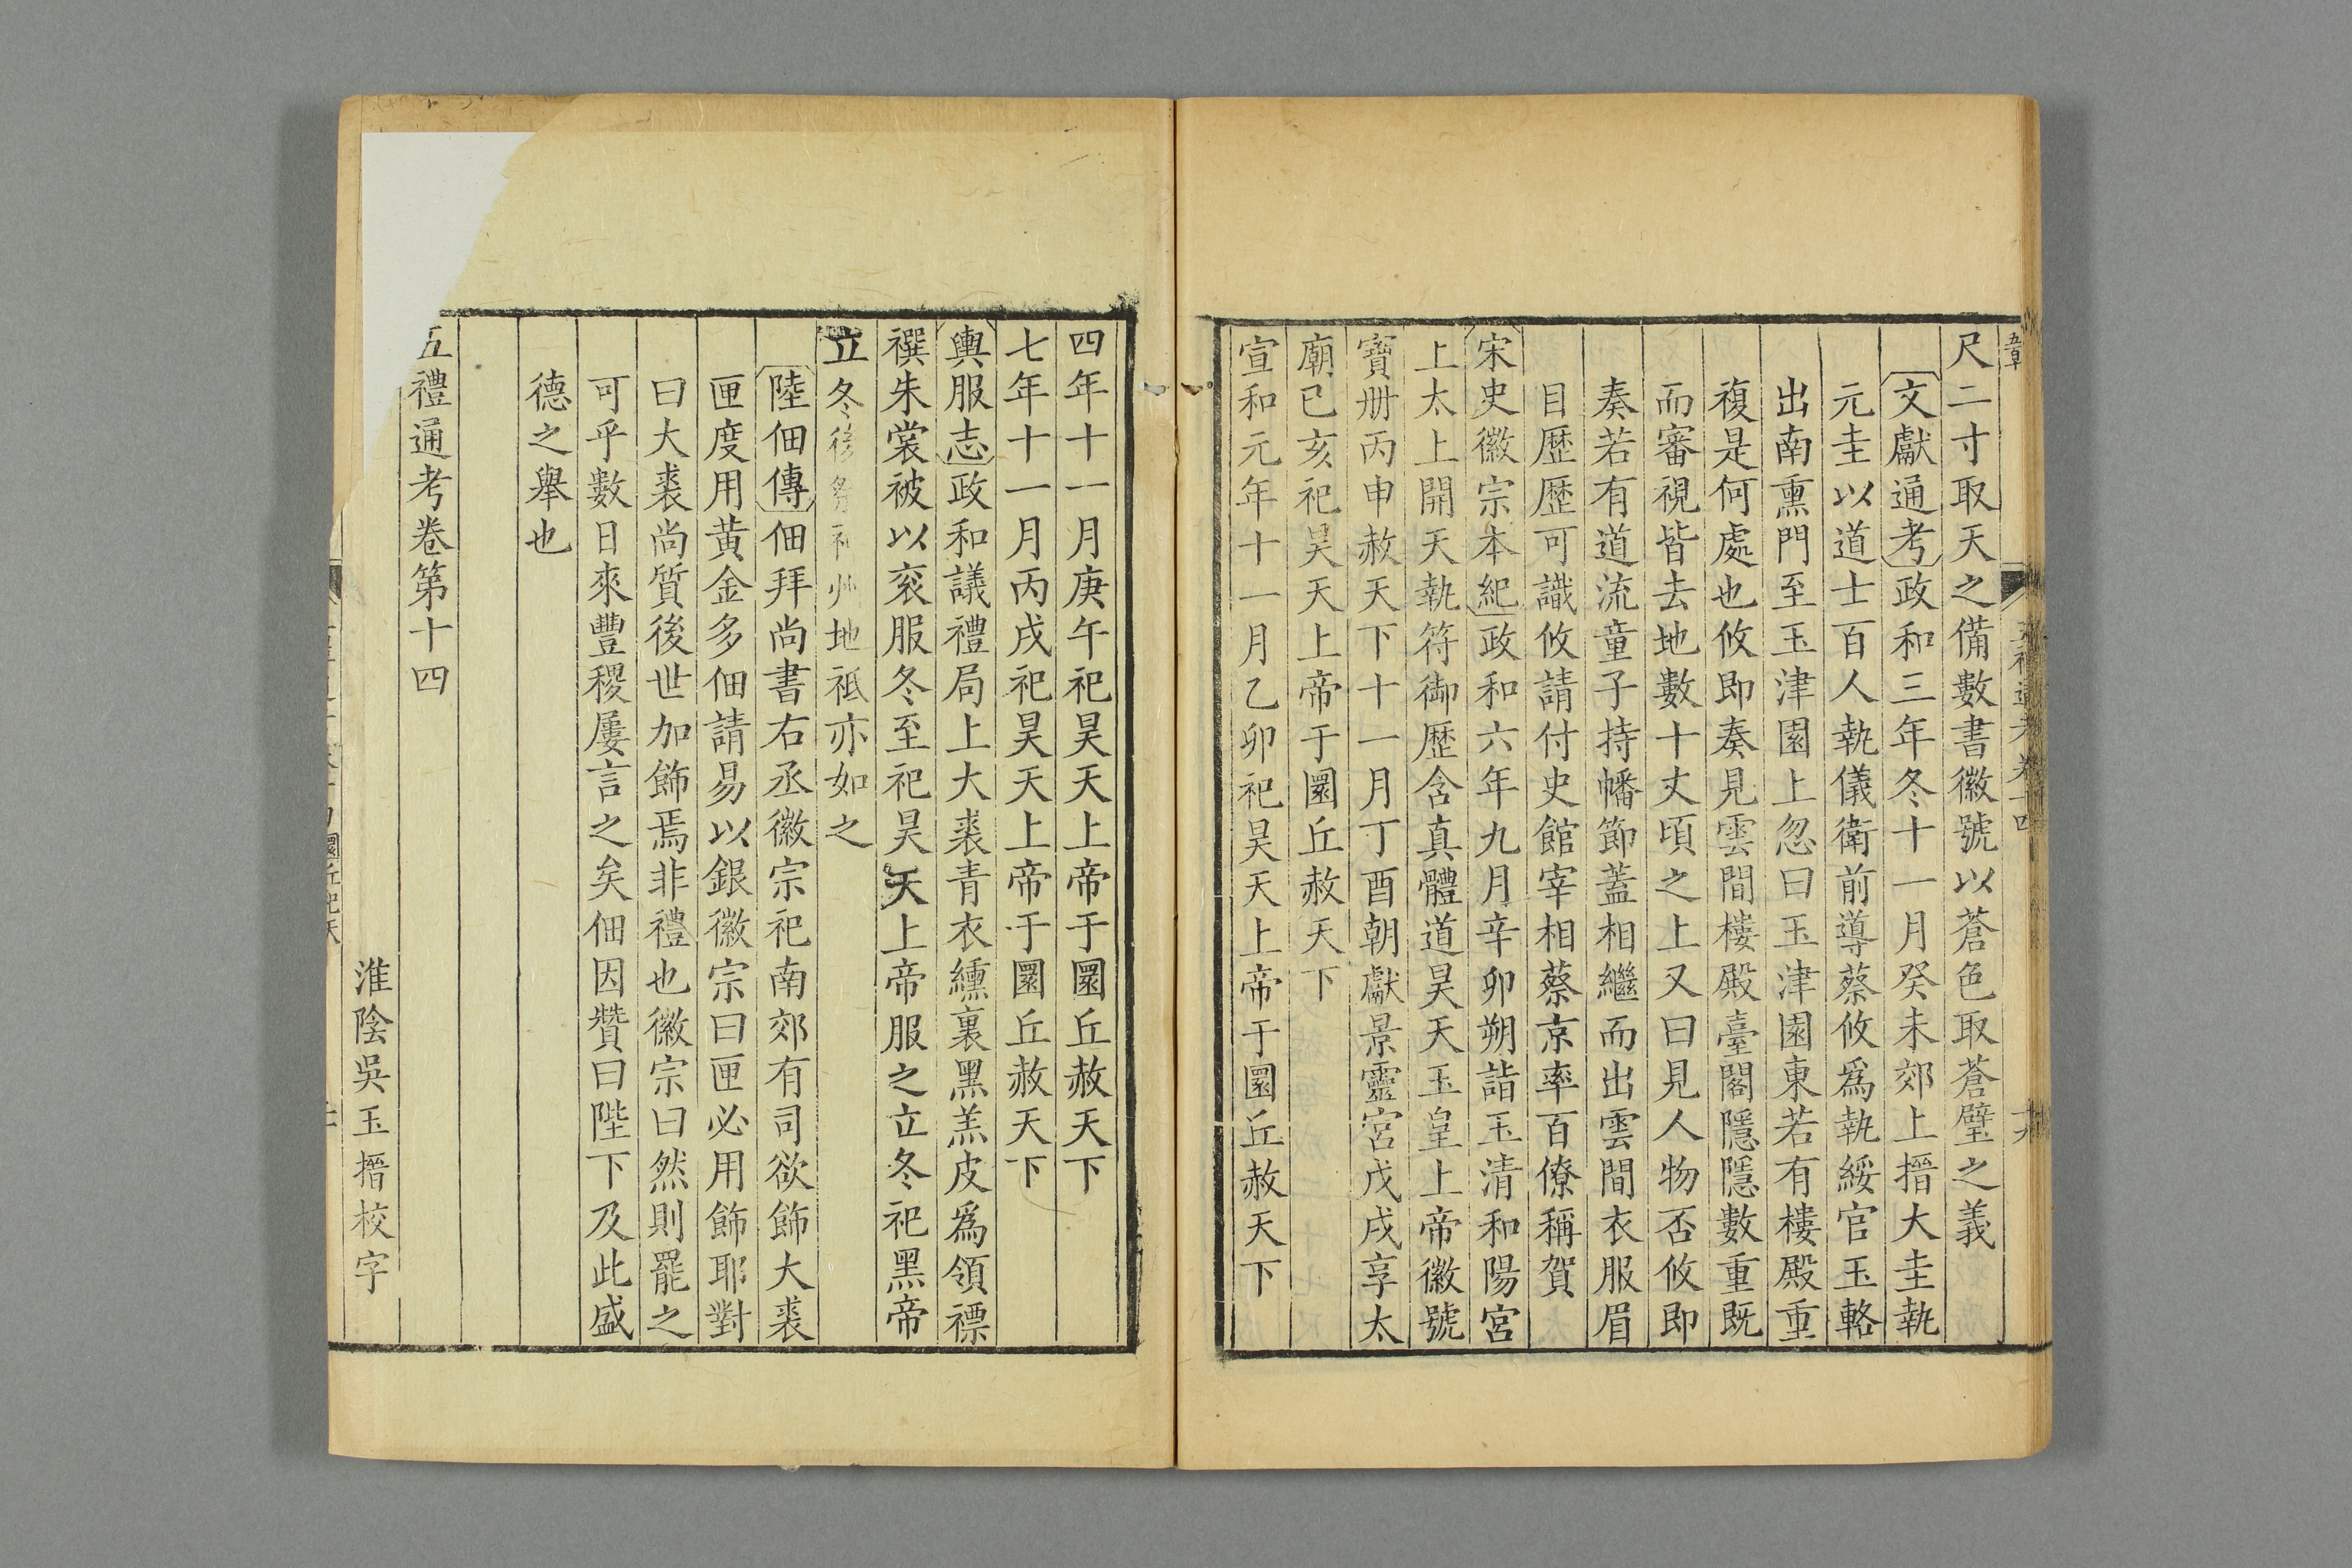 尺二寸取天之備數書徽號以蒼色取蒼璧之義
文獻通考政和三年冬十一月癸未郊上搢大圭執
元圭以道士百人執儀衛前導蔡攸爲執綏官玉輅
出南熏門至玉津園上忽曰玉津園東若有樓殿重
複是何處也攸即奏見雲間樓殿臺閣隱隱數重既
而審視皆去地數十丈頃之上又曰見人物否攸即
奏若有道流童子持幡節蓋相繼而出雲間衣服眉
目歷歷可識攸請付史館宰相蔡京率百僚稱賀
宋史徽宗本紀政和六年九月辛卯朔詣玉清和陽宮
上太上開天執符御歷含真體道昊天玉皇上帝徽號
寶冊丙申赦天下十一月丁酉朝獻景靈宮戊戌享太
廟已亥祀昊天上帝于圜丘赦天下
宣和元年十一月乙卯祀昊天上帝于圜丘赦天下
四年十一月庚午祀昊天上帝于圜丘赦天下
七年十一月丙戌祀昊天上帝于圜丘赦天下
輿服志政和議禮局上大裘青衣纁裏黑羔皮爲領褾
襈朱裳被以衮服冬至祀昊天上帝服之立冬祀黑帝
立冬後祭神州地祇亦如之
陸佃傳佃拜尚書右丞徽宗祀南郊有司欲飾大裘
匣度用黄金多佃請易以銀徽宗曰匣必用飾耶對
曰大裘尚質後世加飾焉非禮也徽宗曰然則罷之
可乎數日來豐稷屢言之矣佃因贊曰陛下及此盛
德之舉也
五禮通考卷第十四
淮陰吳玉搢校字
圜丘祀天